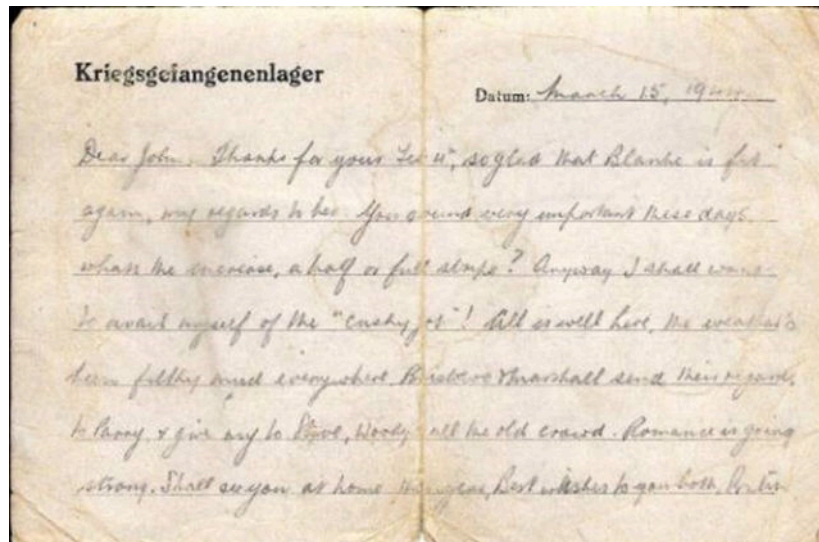 Kriegsgefangenenlager
Datum: March 15, 1944
Dear John. Thanks for yours so glad that Blanche is fit
again, my regards to her. You sound very important these days.
whats the increase, a half or full stripe? Anyway I shall want
to avail myself of the "cushy job"! All is well here, the weather's
been filthy mud everywhere. & Marshall send their regards
to Parry, & give my to Steve, Woody all the old crowd. Romance is going
strong. Shall see you at home this year, Best wishes to you both,